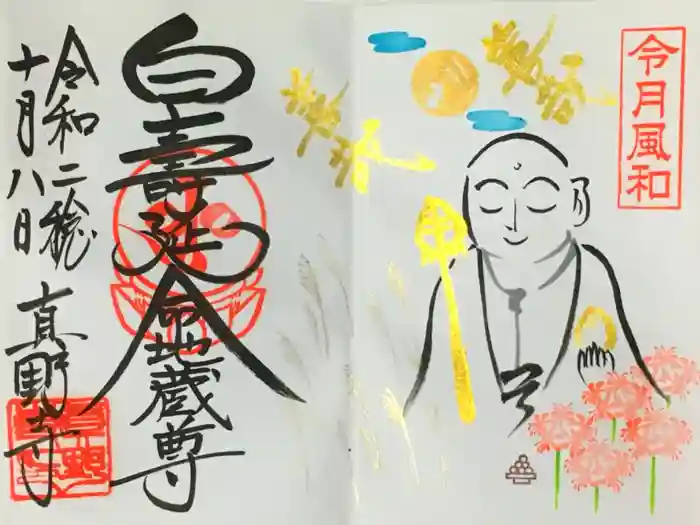 令月風和
白壽延命地蔵尊
令和二稔
十月八日
真野寺